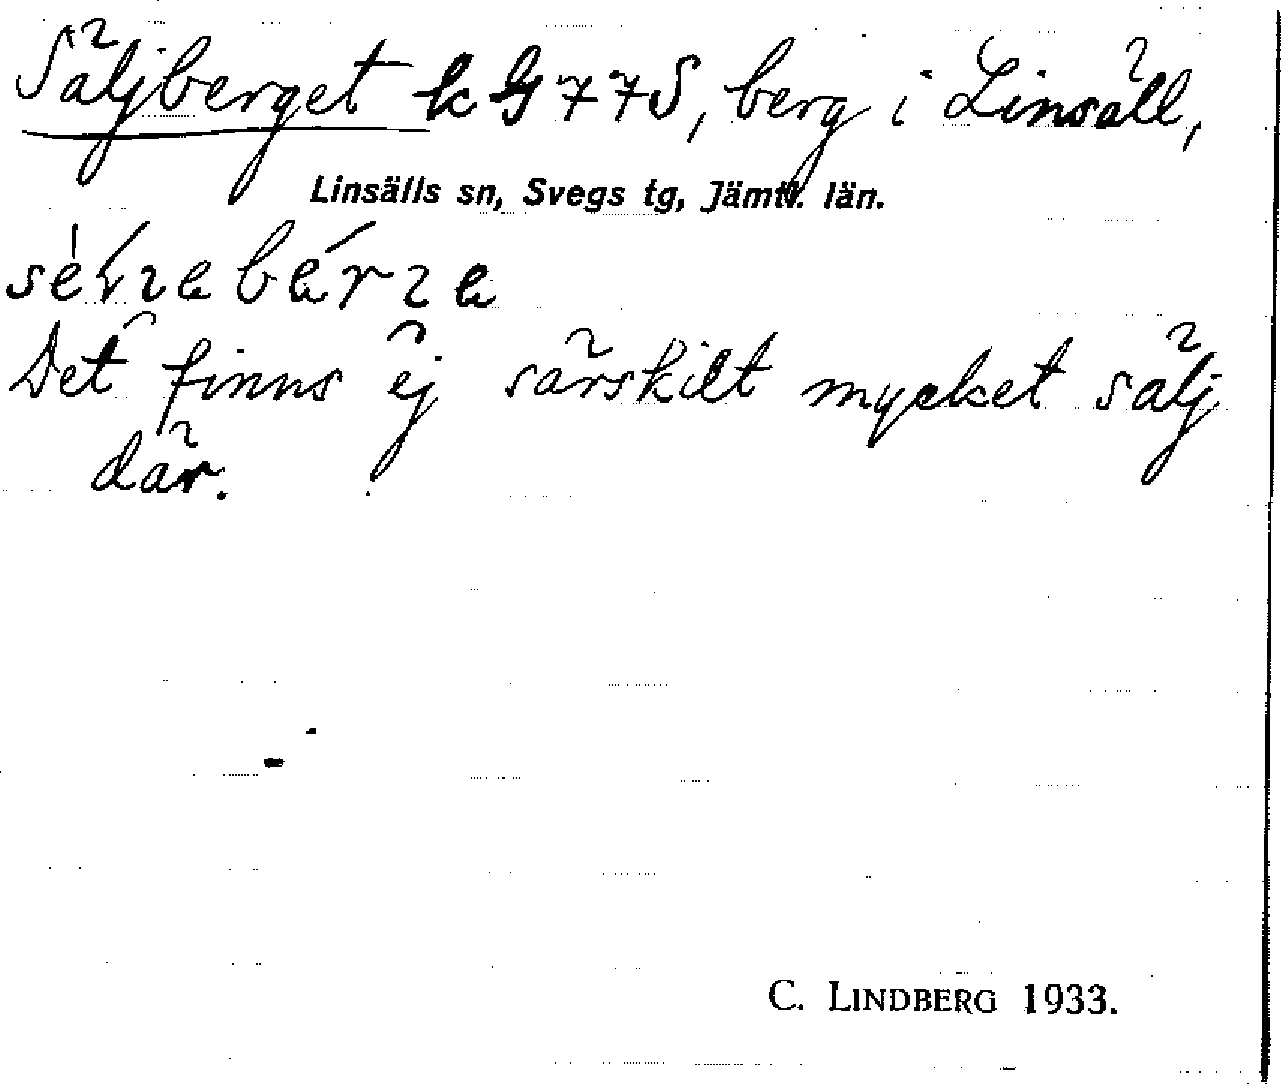 Säljberget k G 7 7 S, berg i Linsäll,
Linsälls sn, Svegs tg, Jämtl. län.
Det finns ej särskilt mycket sälj
där.
C. LINDBERG 1933.